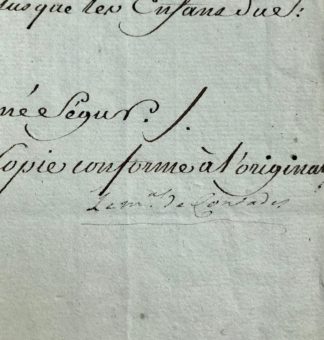 usque les Enfans due:
né Ségur. /.
Copie conforme à l'origina
Le m.al de Contades